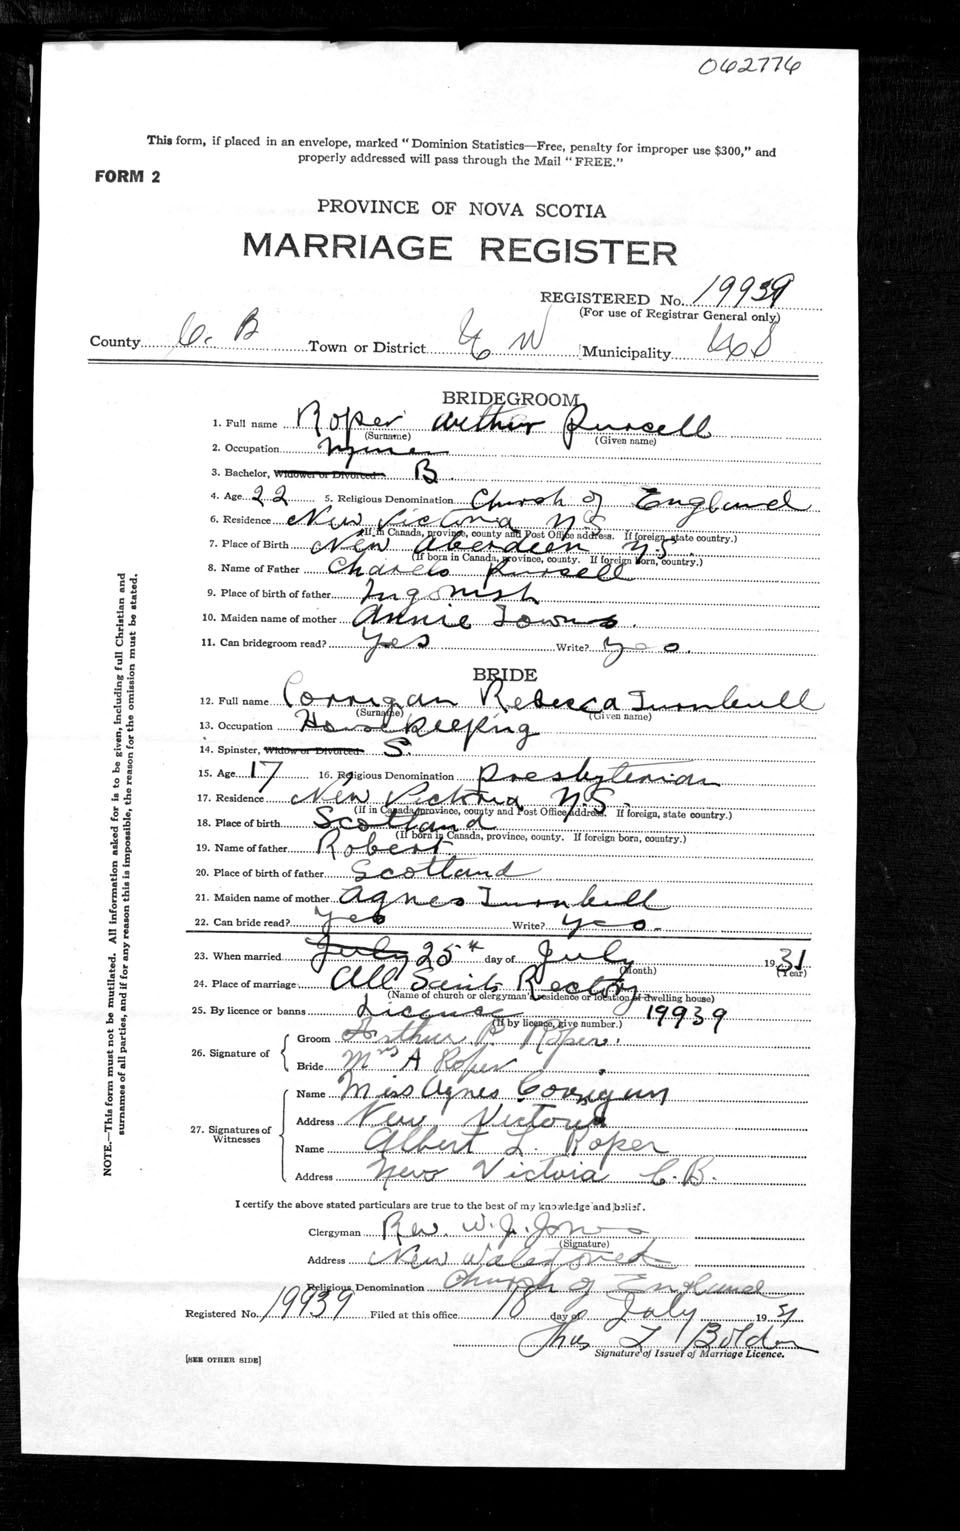 062776
This form, if placed in an envelope, marked "Dominion Statistics—Free, penalty for improper use $300," and
properly addressed will pass through the Mail "FREE."
FORM 2
PROVINCE OF NOVA SCOTIA
MARRIAGE REGISTER
REGISTERED No. 19939
(For use of Registrar General only)
County C. B Town or District N W Municipality
BRIDEGROOM
1. Full name Roper Arthur Purcell
(Surname) (Given name)
2. Occupation
3. Bachelor, Widower or Divorced B
4. Age 22 5. Religious Denomination Church of England
6. Residence New Victoria N.S
If in Canada, province, county and Post Office address. If foreign, state country.)
7. Place of Birth New Aberdeen N.S.
(If born in Canada, province, county. If foreign born, country.)
8. Name of Father Charels Purcell
9. Place of birth of father Ingonish
10. Maiden name of mother Annie Towns.
11. Can bridegroom read? Yes Write? yes.
BRIDE
12. Full name Corrigan Rebecca Turnbull
(Surname) (Given name)
13. Occupation Housekeeping
14. Spinster, Widow or Divorced S.
15. Age 17 16. Religious Denomination Presbyterian
17. Residence New Victoria N.S.
(If in Canada, province, county and Post Office address. If foreign, state country.)
18. Place of birth Scotland
(If born in Canada, province, county. If foreign born, country.)
19. Name of father Robert
20. Place of birth of father Scotland
21. Maiden name of mother Agnes Turnbull
22. Can bride read? Yes Write? yes.
23. When married July 25th day of July 1931
(Month) (Year)
24. Place of marriage All Saints Rectory
(Name of church or clergyman's residence or location of dwelling house)
25. By licence or banns Licence 19939
(If by licence, give number.)
26. Signature of
Groom Arthur P. Roper.
Bride Mrs A Roper
27. Signatures of Witnesses
Name Miss Agnes Corrigan
Address New Victoria
Name Albert L. Roper
Address New Victoria C.B.
I certify the above stated particulars are true to the best of my knowledge and belief.
Clergyman Rev. W. J. Jones
(Signature)
Address New Waterford
Religious Denomination Church of England
Registered No. 19939 Filed at this office 18 day of July 1931
Thos L Bolden
Signature of Issuer of Marriage Licence.
[SEE OTHER SIDE]
NOTE.—This form must not be mutilated. All information asked for is to be given, including full Christian and
surnames of all parties, and if for any reason this is impossible, the reason for the omission must be stated.